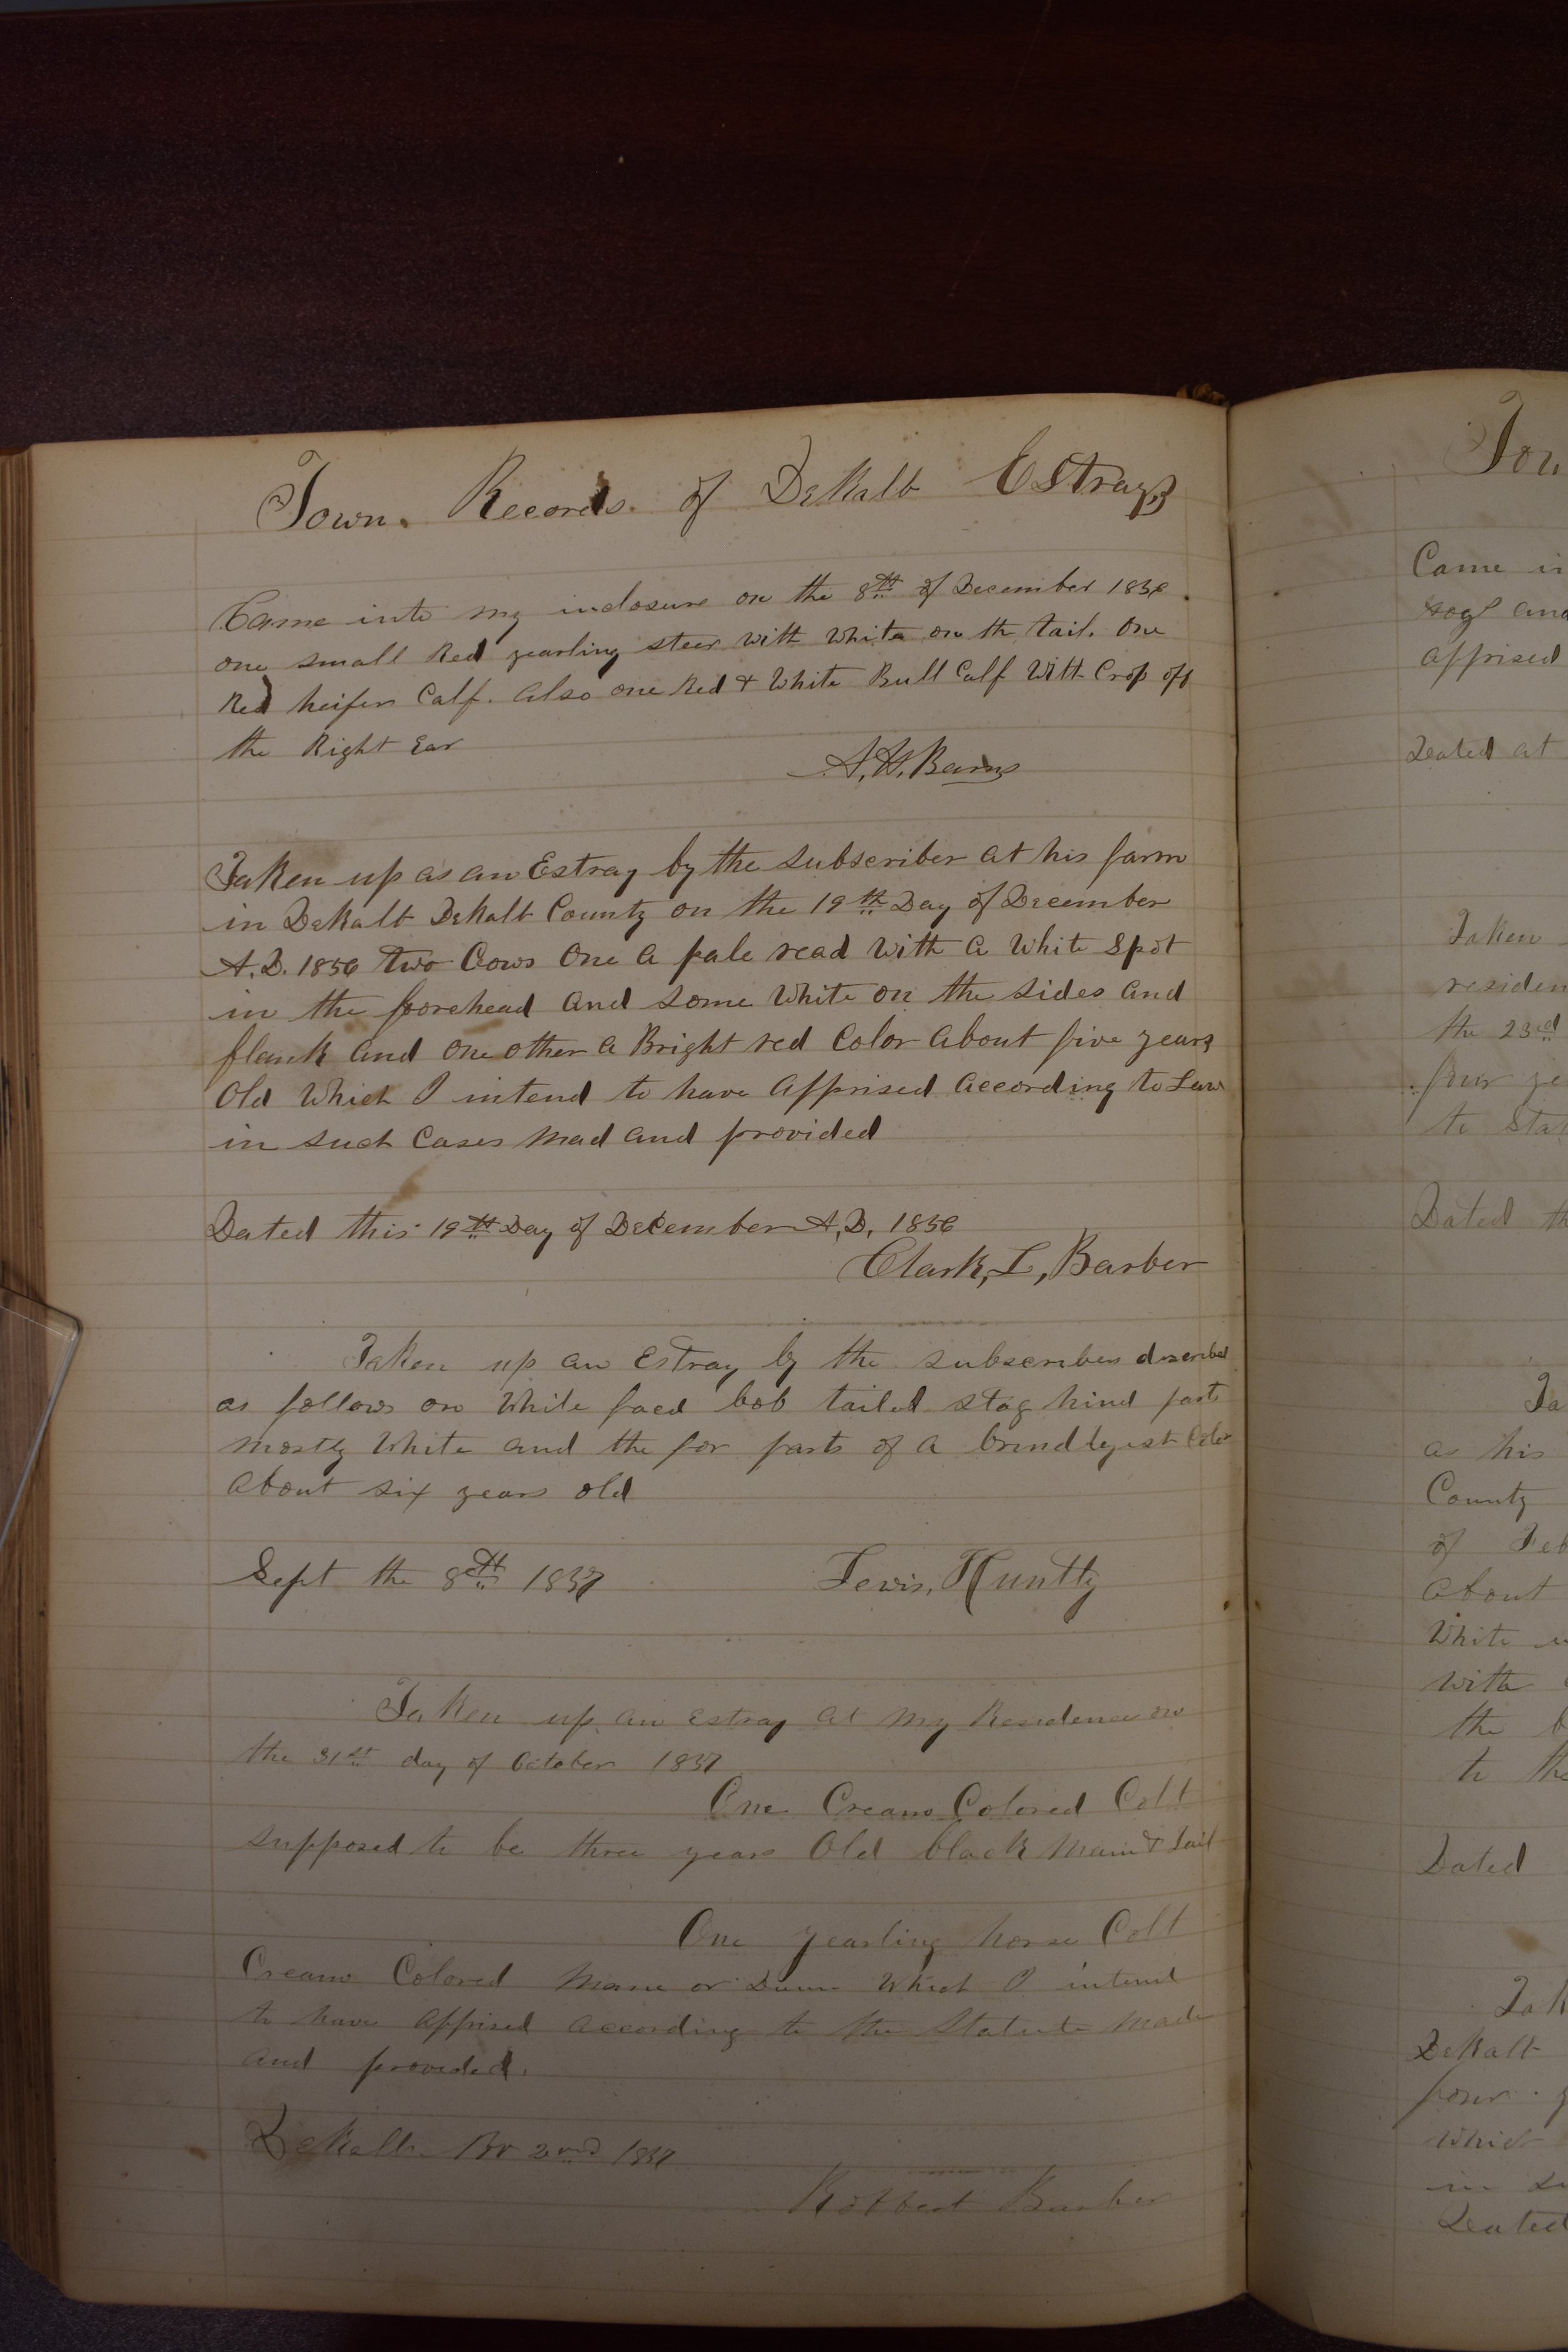 Town. Records. of DeKalb Estrays
Came into my inclosure on the 8th of December 1856.
one small Red yearling steer with white on th tail. One
Red heifer Calf. Also one Red & White Bull Calf With Crop off
the Right Ear
A. H. Barns
Taken up as an Estray by the Subscriber at his farm
in DeKalb DeKalb County on the 19th Day of December
A.D. 1856 two Cows One a pale read with a White Spot
in the forehead and some White on the sides and
flank and one other a Bright red Color about five years
Old Which I intend to have apprised according to Law
in such Cases mad and provided
Dated this 19th Day of December A,D, 1856
Clark, L, Barber
Taken up an Estray by the subscriber
as follows on White faced bob tailed stag hind part
mostly White and the for parts of a Color
about six years old
Sept the 8th 1857
Lewis, Huntly
Taken up an Estray at my Residence on
the 31st day of October 1857
One Cream Colored Colt
supposed to be three years Old black Main & tail
One yearling horse Colt
Cream Colored Mane or Dunn Which I intend
to have apprised according to the Statute made
and provided.
DeKalb 2nd 1857
Barber
Tow
Came in
hogs and
apprised
Dated at
Taken
residen
the 23rd
four ye
to Stat
Dated th
Ta
as his
County
of Feb
about
White
with
the b
to the
Dated
Tak
DeKalb
four y
which
in su
Dated